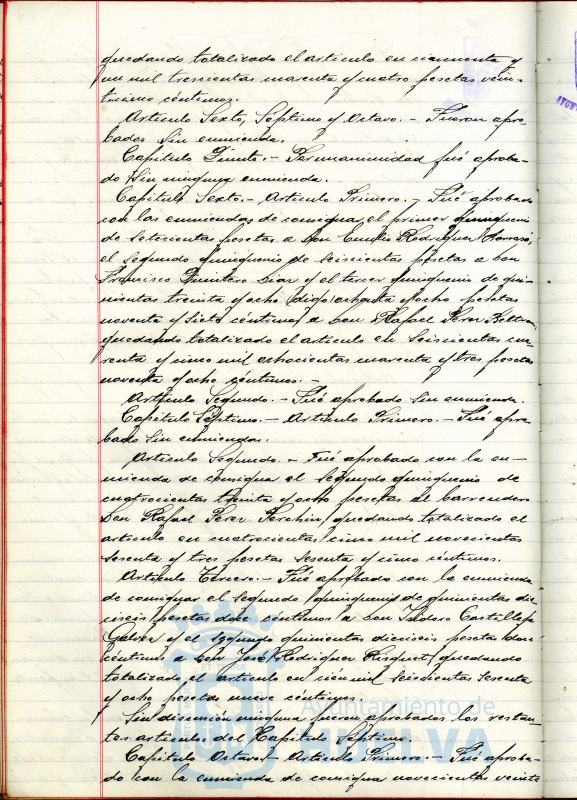 quedando totalizado el artículo en cincuenta y
un mil trescientas cuarenta y cuatro pesetas vein-
ticinco céntimos.
Artículo Sexto, Septimo y Octavo. - Fueron apro-
bados sin enmienda.
Capítulo Quinto. - Por unanimidad fué aproba-
do sin ninguna enmienda.
Capítulo Sexto. - Artículo Primero. - Fué aprobado
con las enmiendas de consignar el primer quinquenio
de setecientas pesetas a Don Emilio Rodriguez
el segundo quinquenio de seiscientas pesetas a Don
Francisco Quintero Diaz y el tercer quinquenio de qui-
nientas treinta y ocho digo ochenta y ocho pesetas
noventa y siete céntimos a Don Rafael Perez Beltran,
quedando totalizado el artículo en seiscientas cua-
renta y cinco mil ochocientas cuarenta y tres pesetas
noventa y ocho céntimos. -
Artículo Segundo. - Fué aprobado sin enmienda.
Capítulo Septimo. - Artículo Primero. - Fué apro-
bado sin enmiendas.
Artículo Segundo. - Fué aprobado con la en-
mienda de consignar el segundo quinquenio de
cuatrocientas treinta y ocho pesetas al barrendero
Don Rafael Perez quedando totalizado el
artículo en cuatrocientas cinco mil novecientas
sesenta y tres pesetas sesenta y cinco céntimos.
Artículo Tercero. - Fué aprobado con la enmienda
de consignar el segundo quinquenio de quinientas die
ciseis pesetas doce céntimos a Don Isidoro Castillejo
Galvez y el segundo quinientas dieciseis pesetas doce
céntimos a Don José Rodriguez quedando
totalizado el artículo en cien mil seiscientas sesenta
y ocho pesetas nueve céntimos.
Sin discusión ninguna fueron aprobados los restan-
tes artículos del Capítulo Septimo.
Capítulo Octavo - Artículo Primero. - Fué aproba-
do con la enmienda de consignar novecientas veinte
Ayuntamiento de
HUELVA